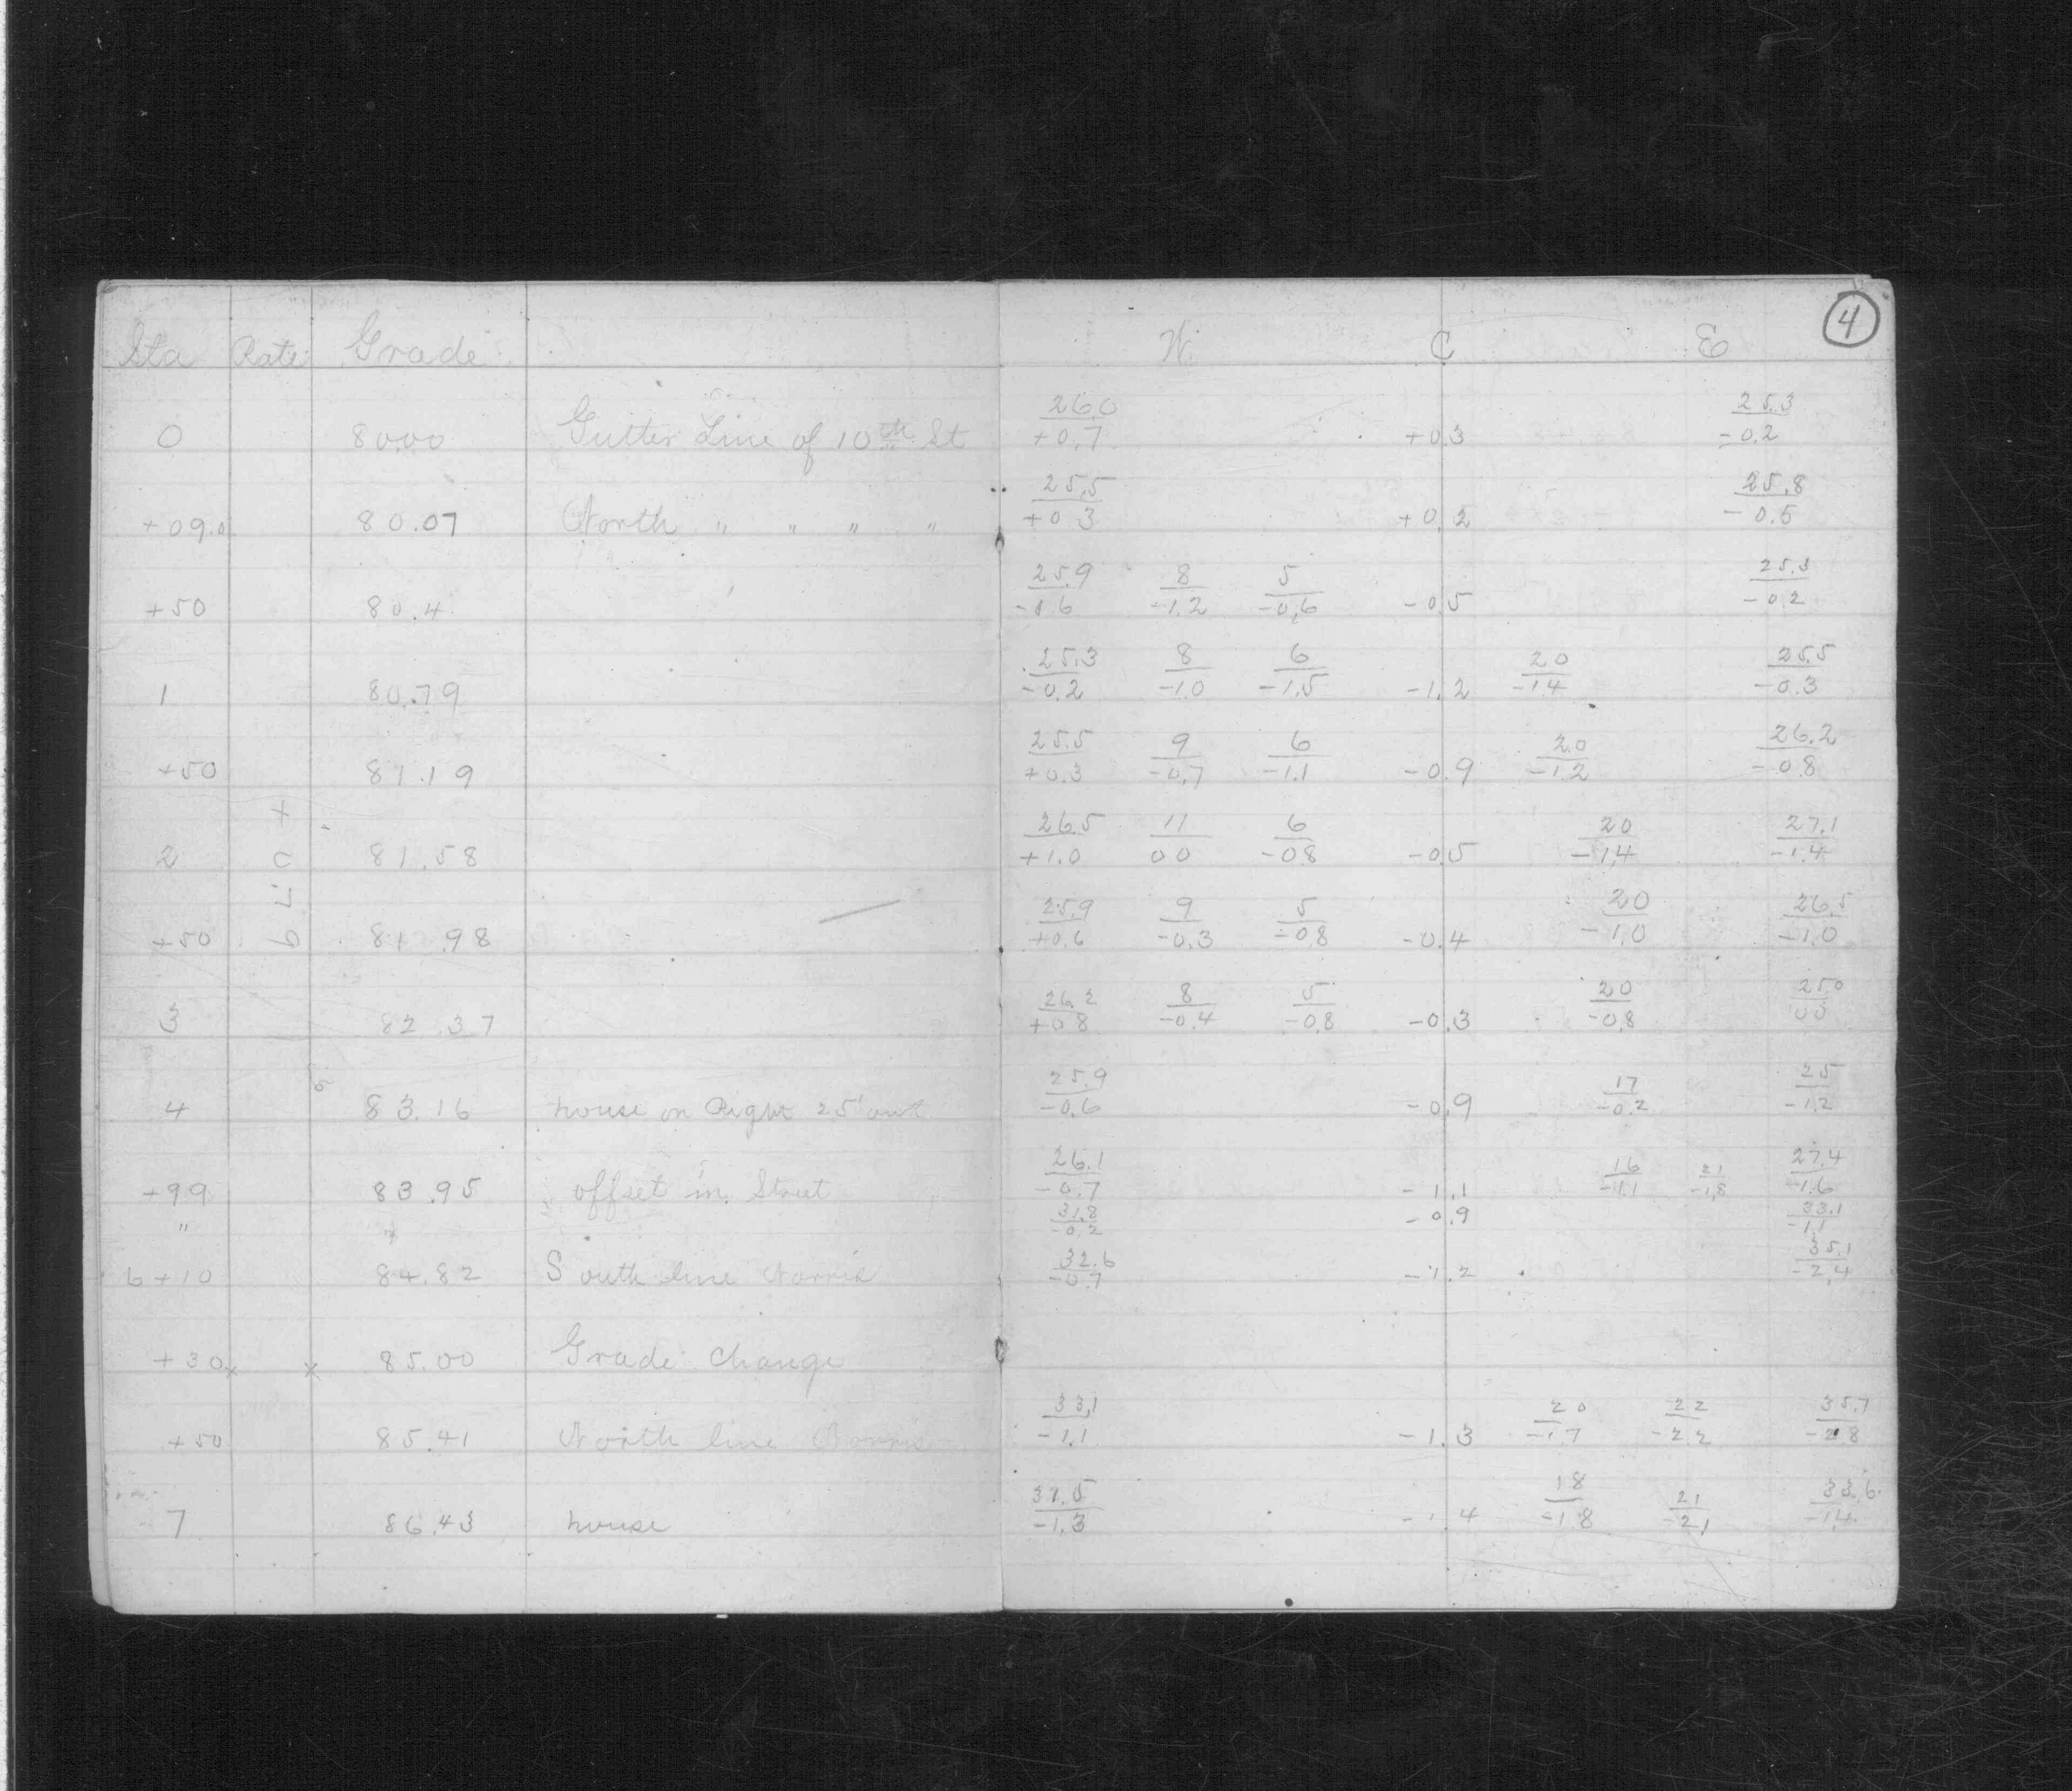 4
Sta Rate Grade W C E
0 80.00 Gutter Line of 10th St 26.0/+0.7 +0.3 25.3/-0.2
+09.0 80.07 North " " " " 25.5/+0.3 +0.2 25.8/-0.5
+50 80.4 25.9/-1.6 8/-1.2 5/-0.6 -0.5 25.3/-0.2
1 80.79 25.3/-0.2 8/-1.0 6/-1.5 -1.2 20/-1.4 25.5/-0.3
+50 81.19 25.5/+0.3 9/-0.7 6/-1.1 -0.9 20/-1.2 26.2/-0.8
2 81.58 26.5/+1.0 11/00 6/-0.8 -0.5 20/-1.4 27.1/-1.4
+0.79
+50 81.98 25.9/+0.6 9/-0.3 5/-0.8 -0.4 20/-1.0 26.5/-1.0
3 82.37 26.2/+0.8 8/-0.4 5/-0.8 -0.3 20/-0.8 25.0/00
4 83.16 house on Right 25' out 25.9/-0.6 -0.9 17/-0.2 25/-1.2
+99 83.95 offset in Street 26.1/-0.7 -1.1 16/-1.1 21/-1.8 27.4/-1.6
" 31.8/-0.2 -0.9 33.1/-1.1
6+10 84.82 South line Norris 32.6/-0.7 -1.2 35.1/-2.4
+30 x x 85.00 Grade Change
+50 85.41 North line Norris 33.1/-1.1 -1.3 20/-1.7 22/-2.2 35.7/-2.8
7 86.43 house 37.5/-1.3 -1.4 18/-1.8 21/-2.1 33.6/-1.4